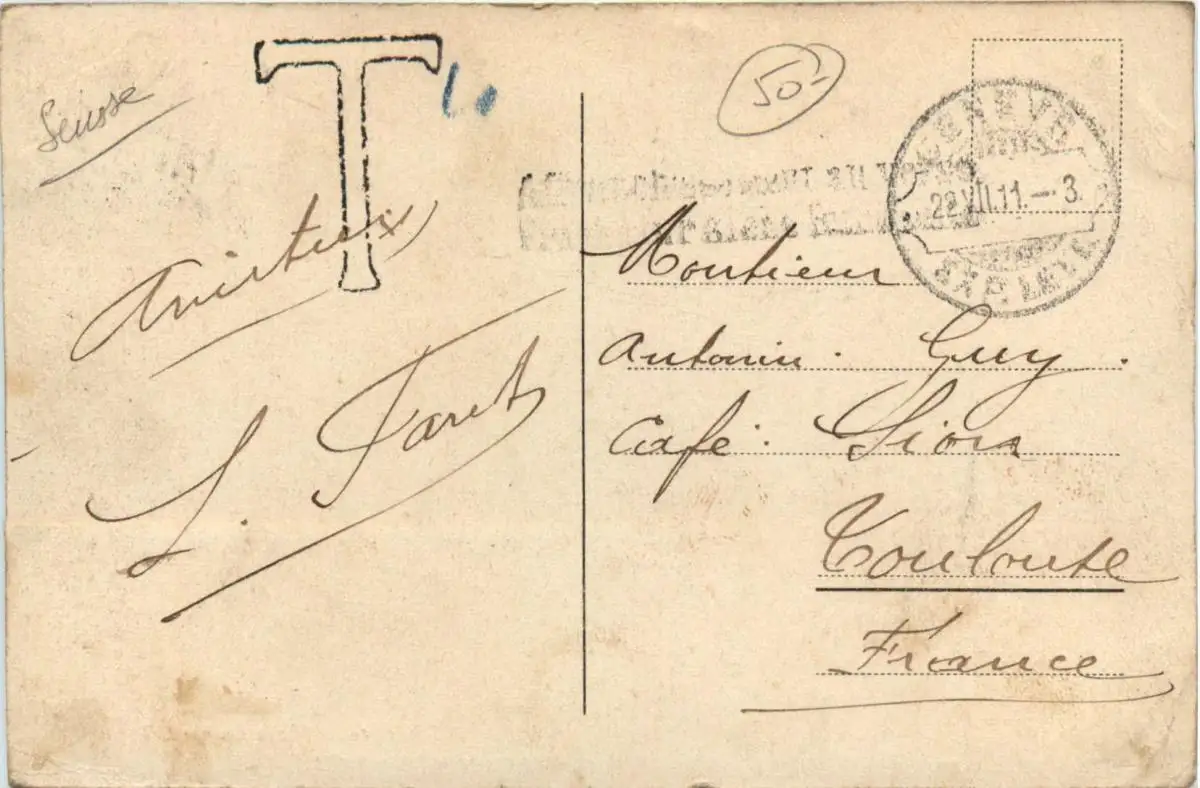 Suisse
T
50
GENEVE
22.VII.11.-3.
EXP. LETT.
Affranchissement au verso
Amitiés
L. Paret
Monsieur
Antonin Guy
Café Sion
Toulouse
France